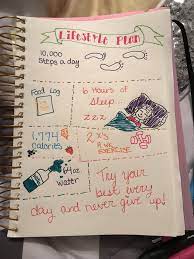 Lifestyle Plan
10,000
Steps a day
Food Log
6 Hours of
Sleep
zzz
1,774
calories
2x's
a wk
EXERCISE
64oz
water
Try your
best every
day and never give up!